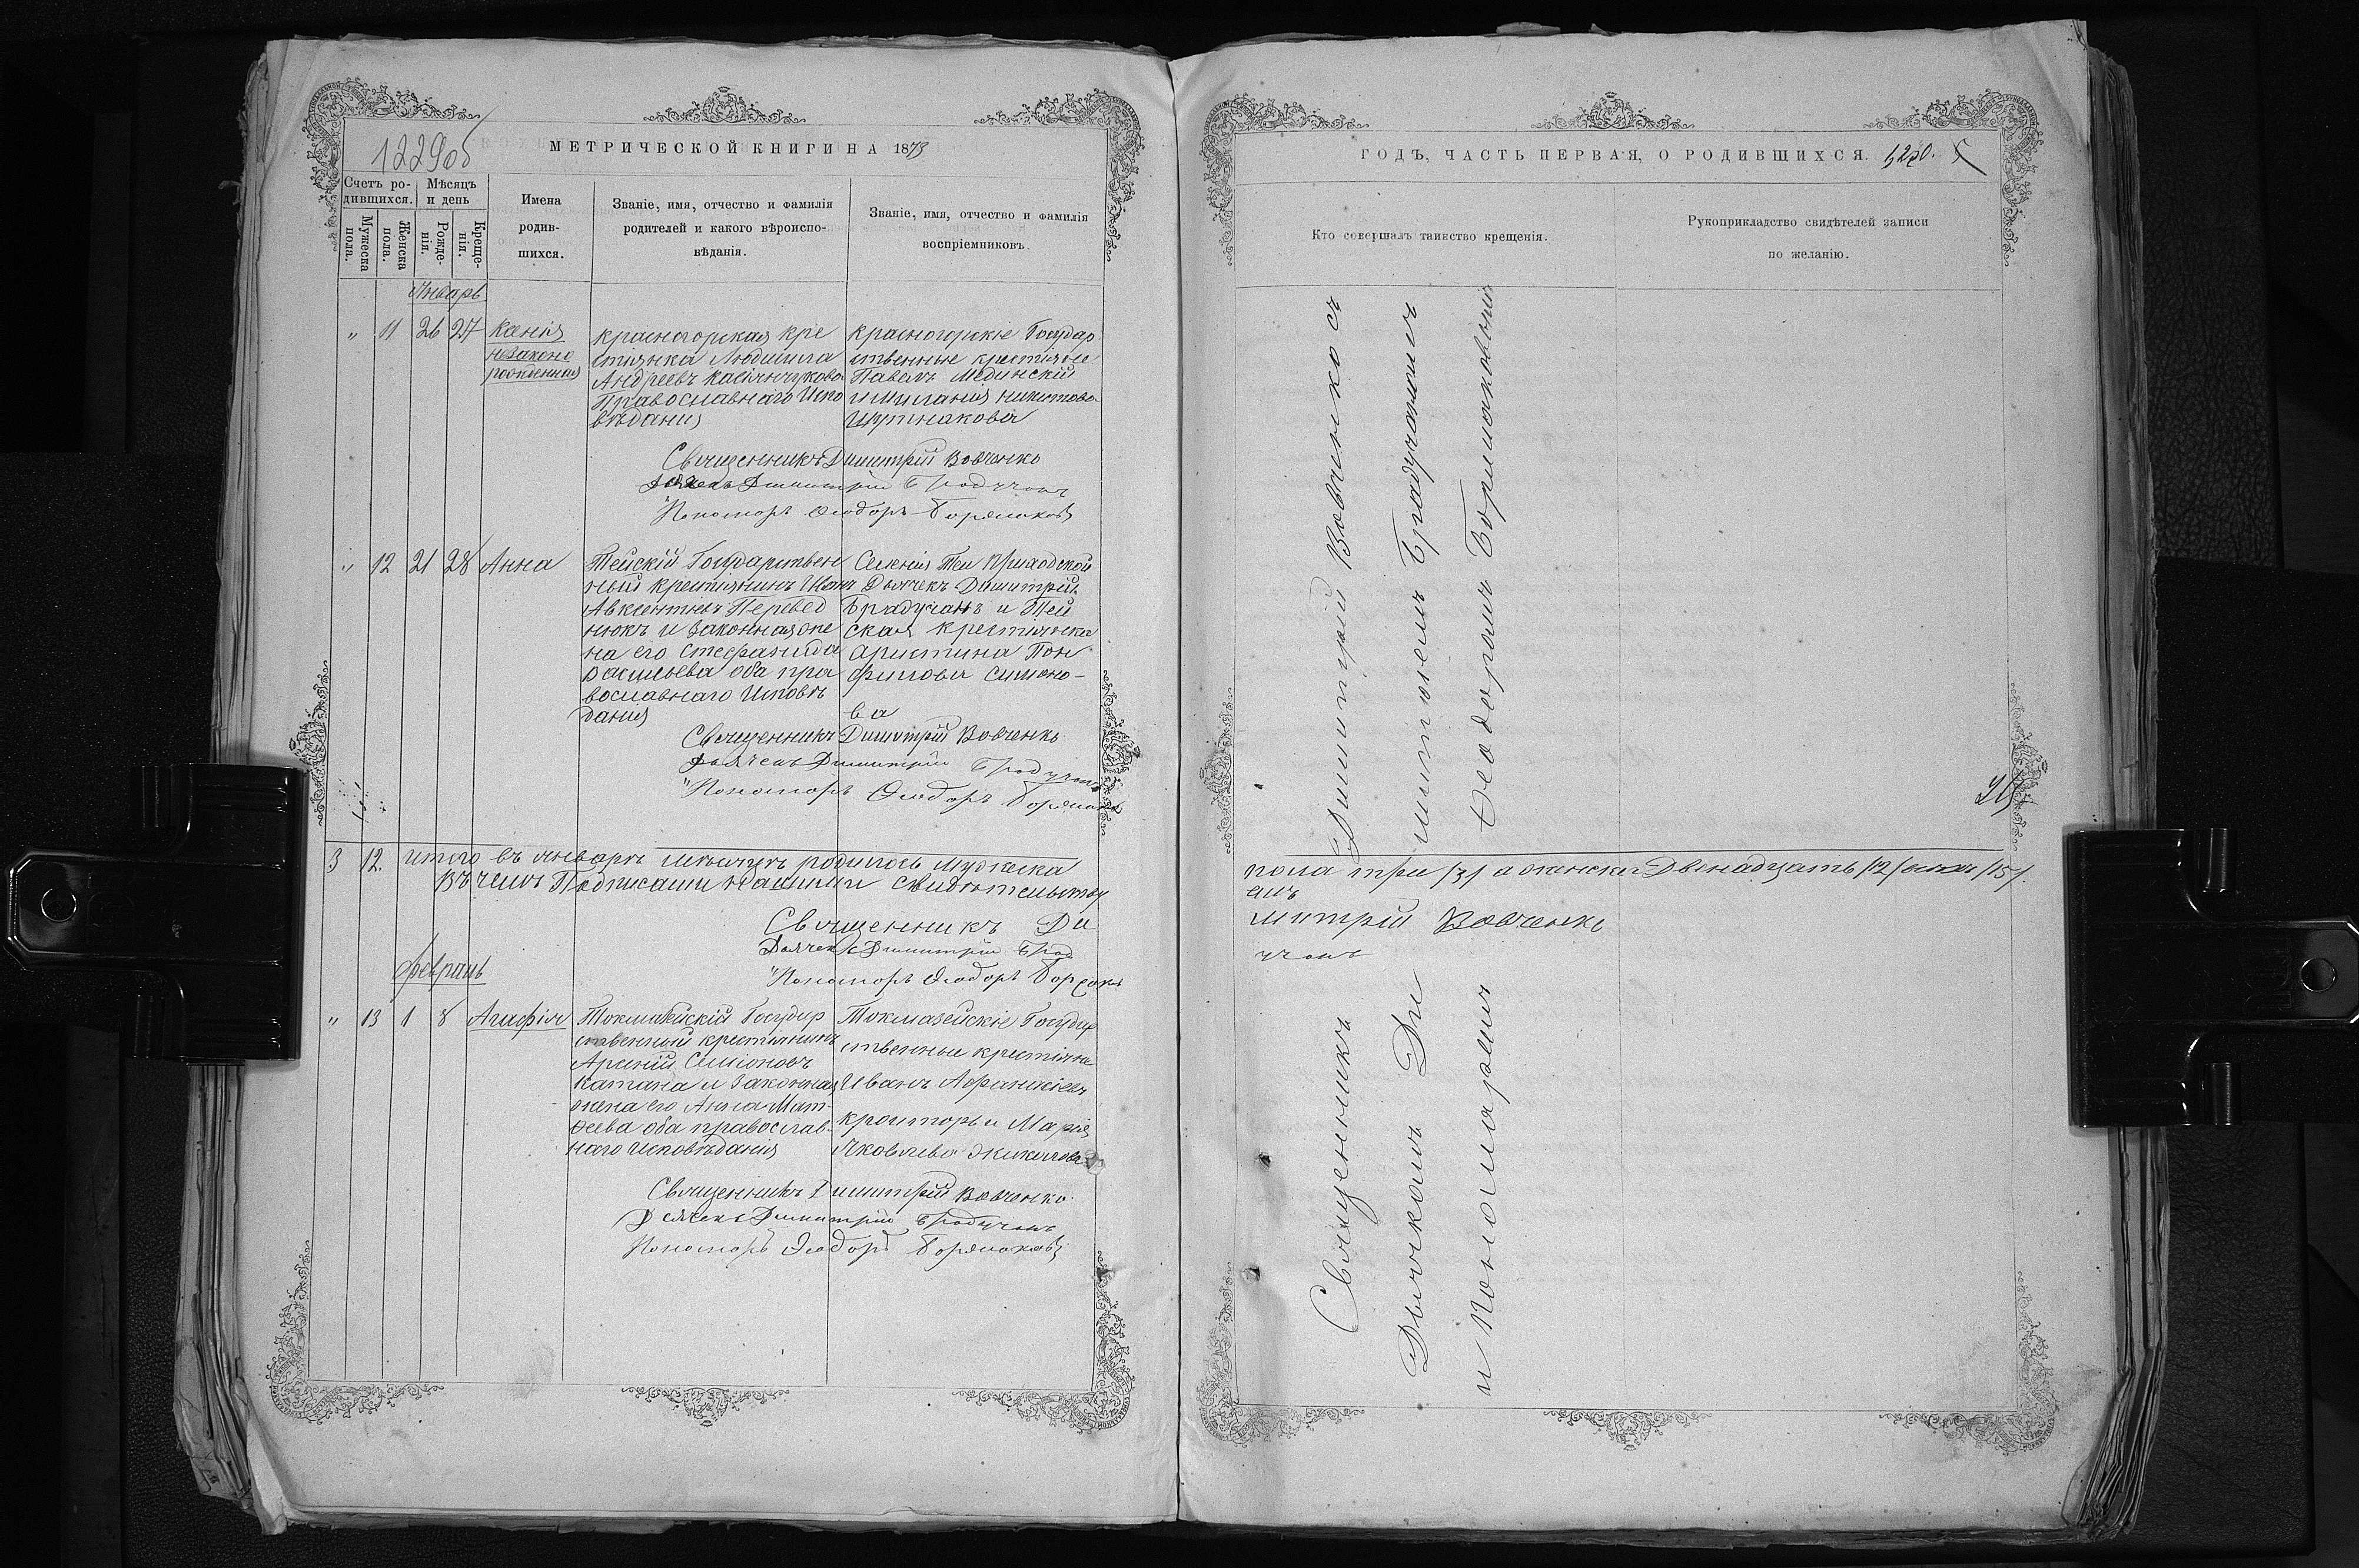 1229об
МЕТРИЧЕСКОЙ КНИГИ НА 1873
Счетъ ро-
дившихся.
Мѣсяцъ
и день
Мужеска
пола.
Женска
пола.
Рожде-
нія.
Креще-
нія.
Имена
родив-
шихся.
Званіе, имя, отчество и фамилія
родителей и какого вѣроиспо-
вѣданія.
Званіе, имя, отчество и фамилія
воспріемниковъ.
Январь
" 11 26 27 Ксенія
незаконо
рожденная
Красногорская кре
стьянка Людмила
Андреевъ
Православнаго Испо
вѣданія
Красногорскіе Государ
ственные крестьяне
Павелъ Мединскій
и Миланія Никитова
Священникъ Димитрій Вовченко
Дьячекъ Димитрій Брадучанъ
Пономоръ Ѳеодоръ
" 12 21 28 Анна
Тейскій Государствен
ный крестьянинъ Иванъ
Авксентіевъ Перевед
нюкъ и законная же
на его Стефанида
Васильева оба пра
вославнаго Исповѣ
данія
Селенія Теи Приходской
Дьячекъ Димитрій
Брадучанъ и Тей
ская крестьянка
Аристина Пон
филова Симоно-
ва
Священникъ Димитрій Вовченко
Дьячекъ Димитрій Брадучанъ
"Пономоръ Ѳеодоръ
3 12. Итого въ январѣ мѣсяцѣ родилось мужеска
Въ чемъ Подписами нашими свидѣтельству
Священникъ Ди
Дьячекъ Димитрій Брад
"Пономоръ Ѳеодоръ
Февраль
" 13 1 8 Агафія
Токмазейскій Государ
ственный крестьянинъ
Арсеній Семіоновъ
Катана и законная
жена его Анна Мат-
ѳеева оба православ-
наго Исповѣданія
Токмазейскіе Государ
ственные крестьяне
Иванъ Афанасіевъ
Кроиторъ и Марія
Яковлева
Священникъ Димитрій Вовченко
Дьячекъ Димитрій Брадучанъ
Пономоръ Ѳеодоръ
ГОДЪ, ЧАСТЬ ПЕРВАЯ, О РОДИВШИХСЯ.
Кто совершалъ таинство крещенія.
Рукоприкладство свидѣтелей записи
по желанію.
Димитрій Вовченко съ
митріемъ Брадучаномъ
Ѳеодоромъ
пола три /3/ а женска Двенадцать /12/ /15/.
емъ
митрій Вовченко
учанъ
Священникъ
Дьячкомъ Ди
и Пономаремъ